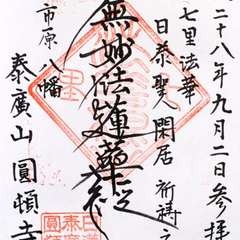 二十八年九月二日参拝
七里法華
日泰聖人 閑居 祈祷之
無妙法蓮華経
市原八幡
泰廣山 圓頓寺